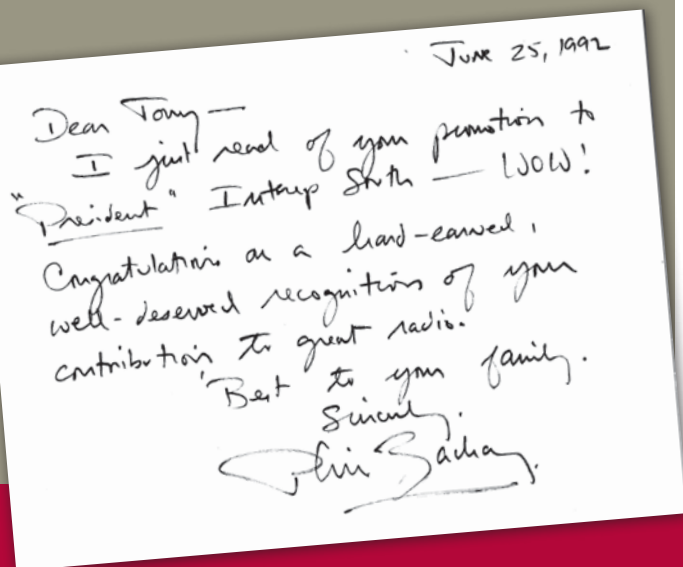 June 25, 1992
Dear Tony —
I just read of your promotion to
"President" Interep South — WOW!
Congratulations on a hard-earned,
well-deserved recognition of your
contribution to great radio.
Best to your family.
Sincerely,